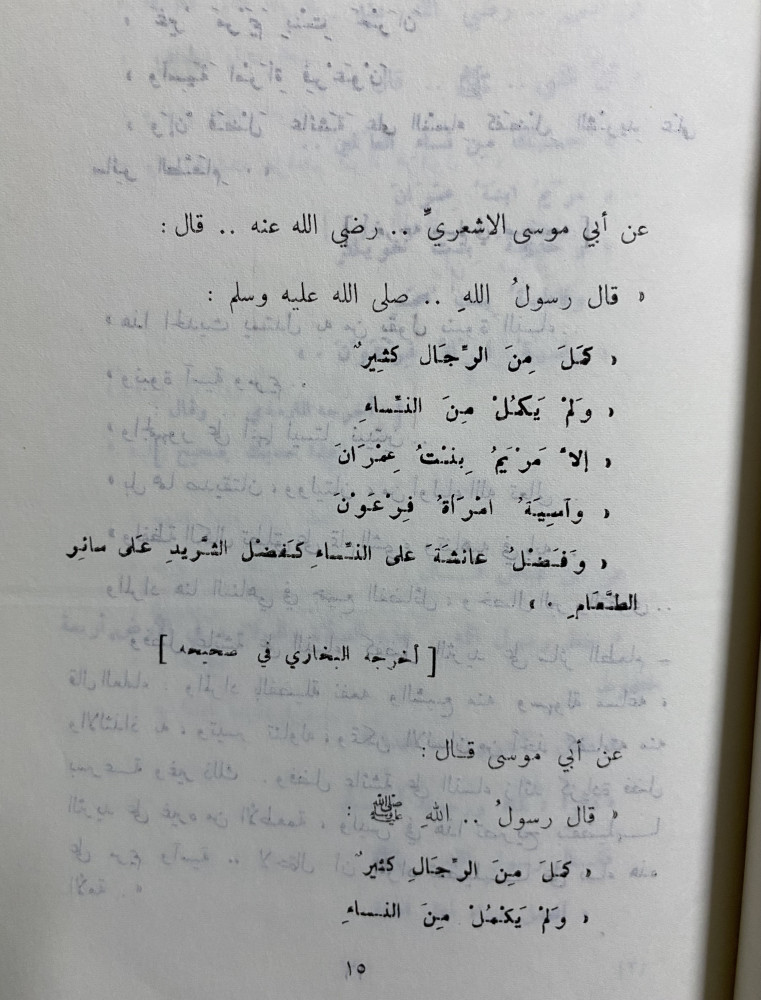 عن أبي موسى الاشعريِّ .. رضي الله عنه .. قال :
« قال رسولُ اللهِ .. صلى الله عليه وسلم :
« كَمَلَ مِنَ الرِّجَال كثِيرٌ
« ولَمْ يَكمُلْ مِنَ النِّساءِ
« إلاَّ مَرْيَمُ بِنْتُ عِمْرَانَ
« وآسِيَةُ امْرَأةُ فِرْعَوْنَ
« وَفَضْلُ عائشَةَ على النِّساءِ كَفَضْل الثَّريدِ عَلَى سائِرِ
الطَّعَامِ . »
[ أخرجه البخاري في صحيحه ]
عن أبي موسى قال :
« قال رسولُ .. اللهِ ﷺ :
« كَمَلَ مِنَ الرِّجَالِ كثيرٌ
« ولَمْ يَكْمُلْ مِنَ النساءِ
١٥